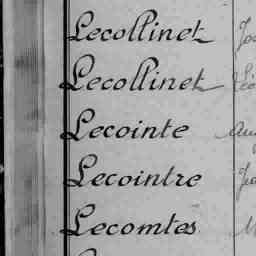 Lecollinet
Lecollinet
Lecointe
Lecointre
Lecomtes